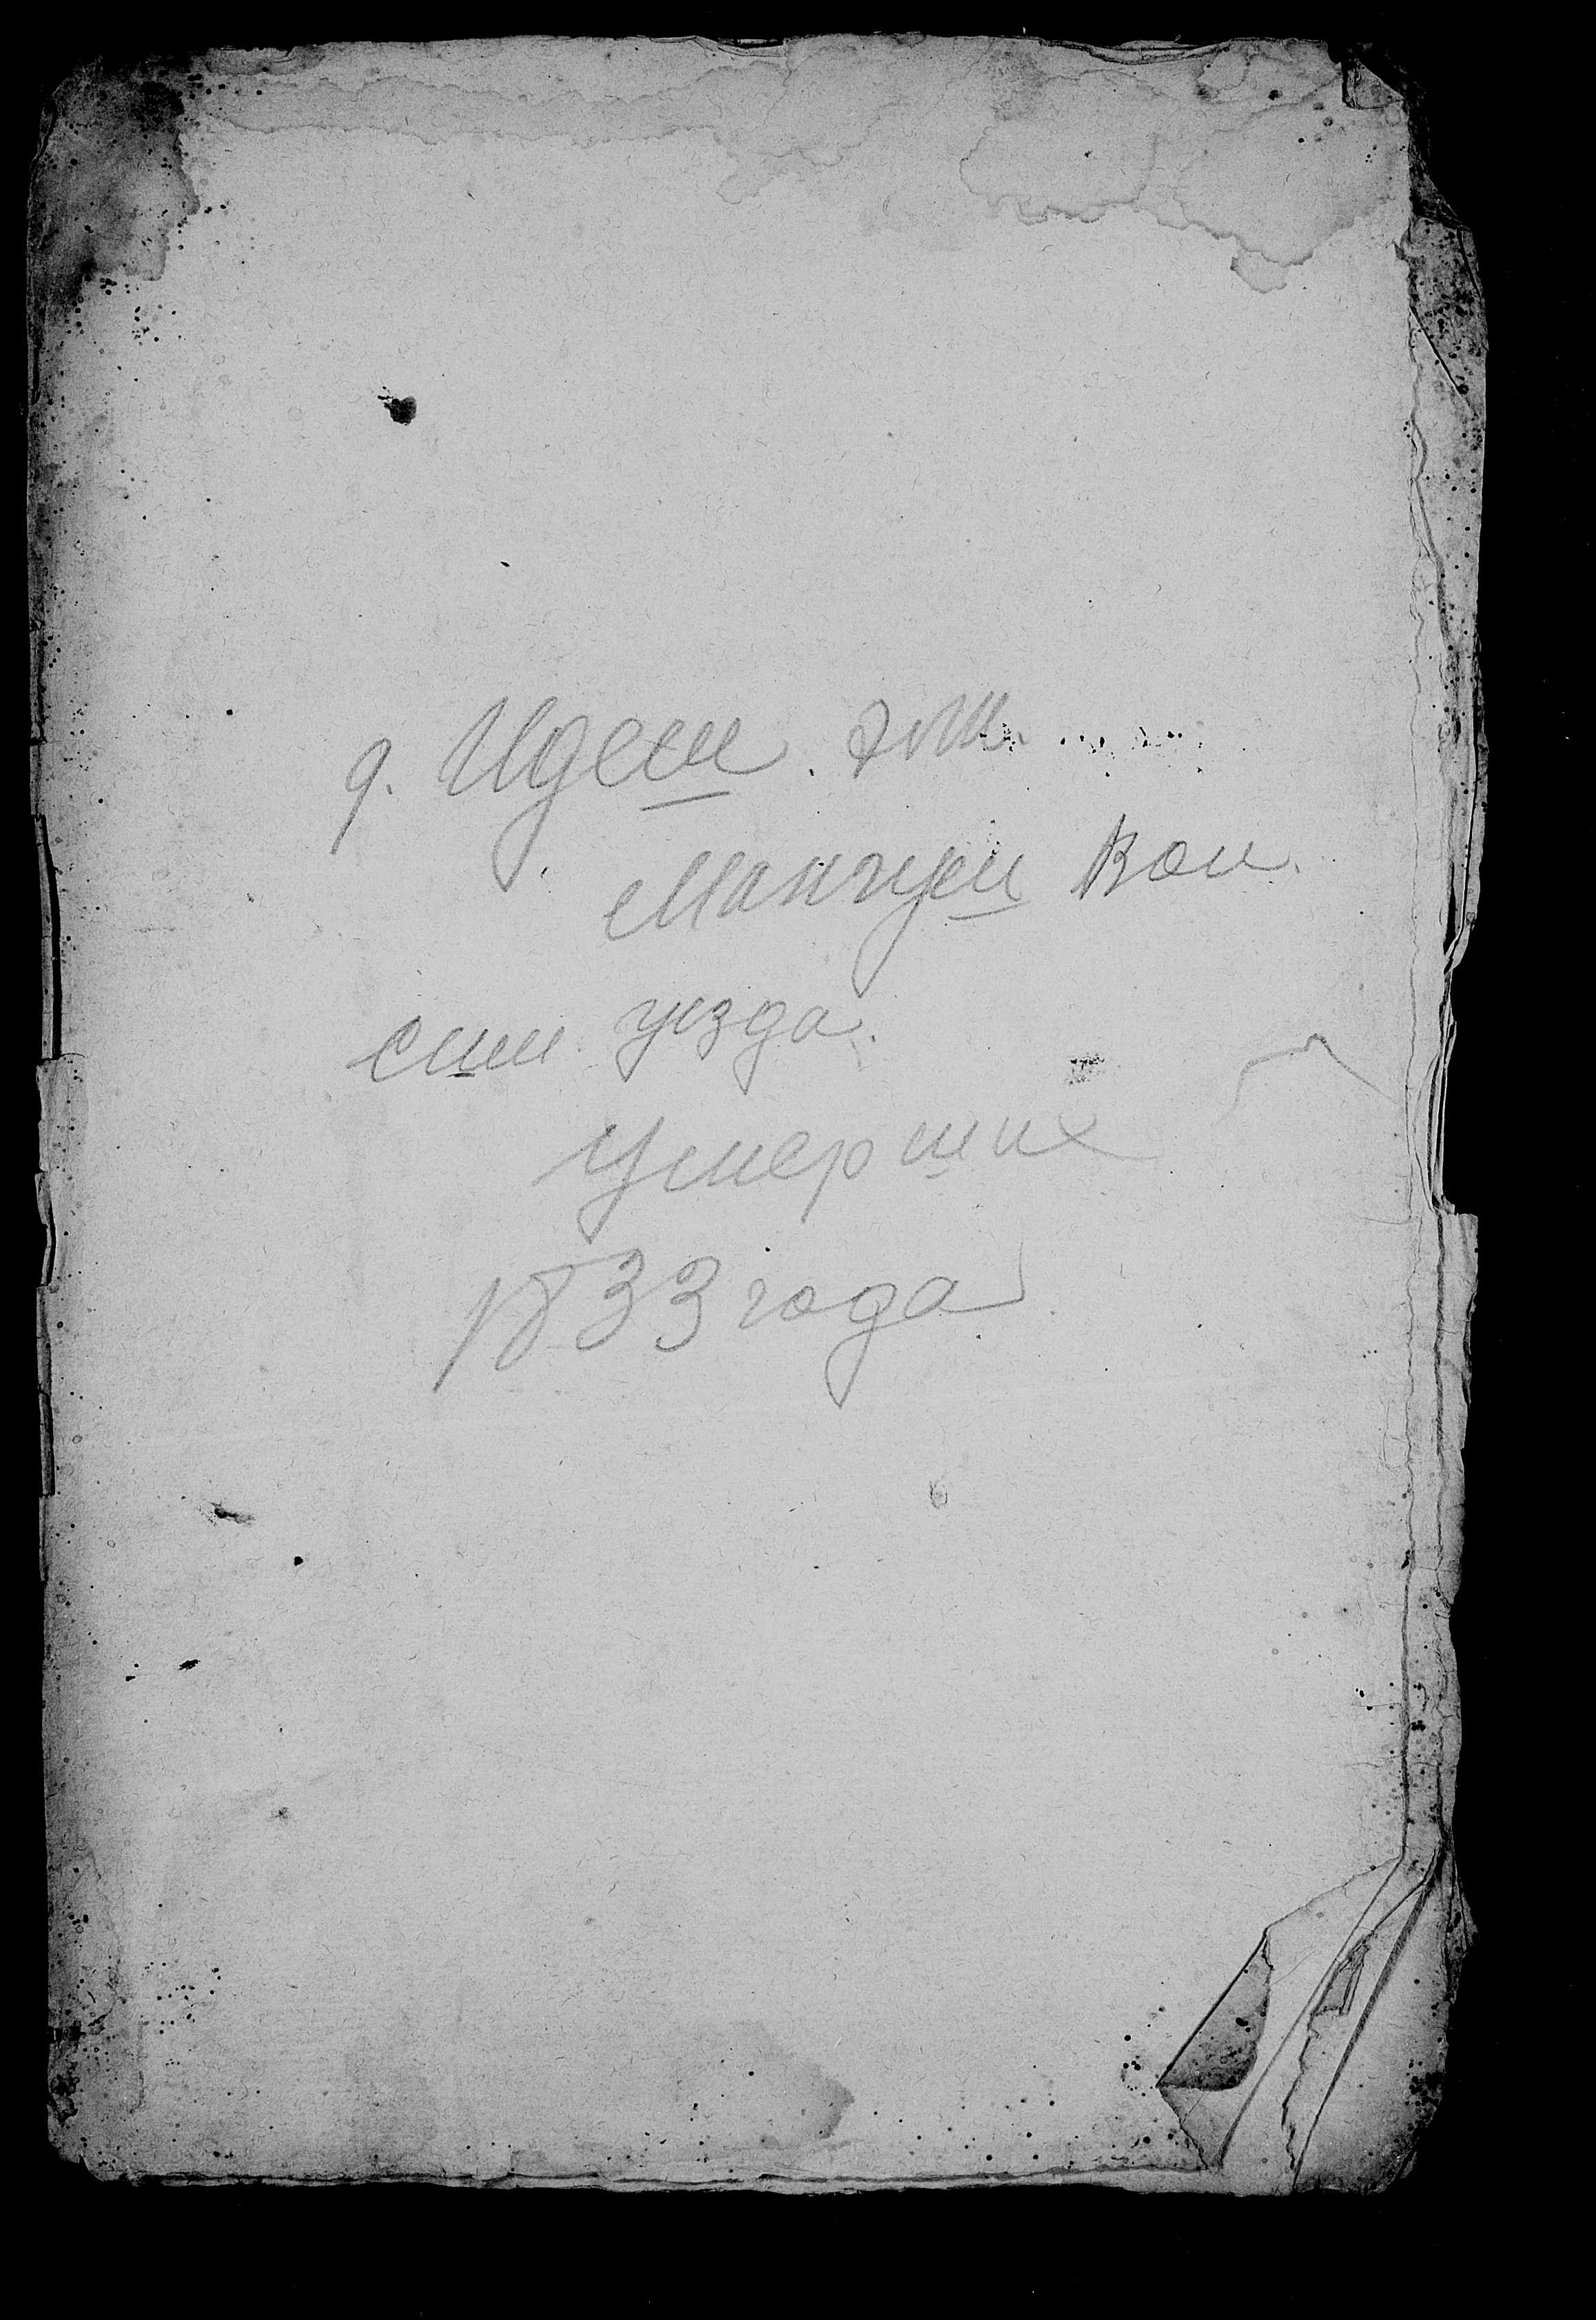 д. Идеш. эли.
Мангуш вол.
сим. уезда.
Умерших
1833 года